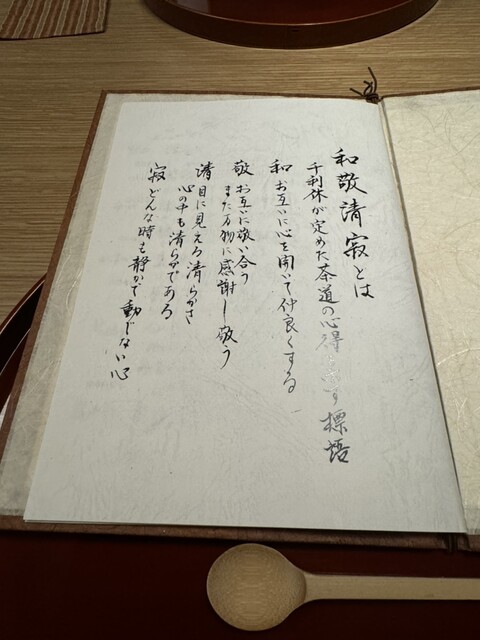 和敬清寂とは
千利休が定めた茶道の心得を示す標語
和 お互いに心を開いて仲良くする
敬 お互いに敬い合う
また万物に感謝し敬う
清 目に見える清らかさ
心の中も清らかである
寂 どんな時も静かで動じない心